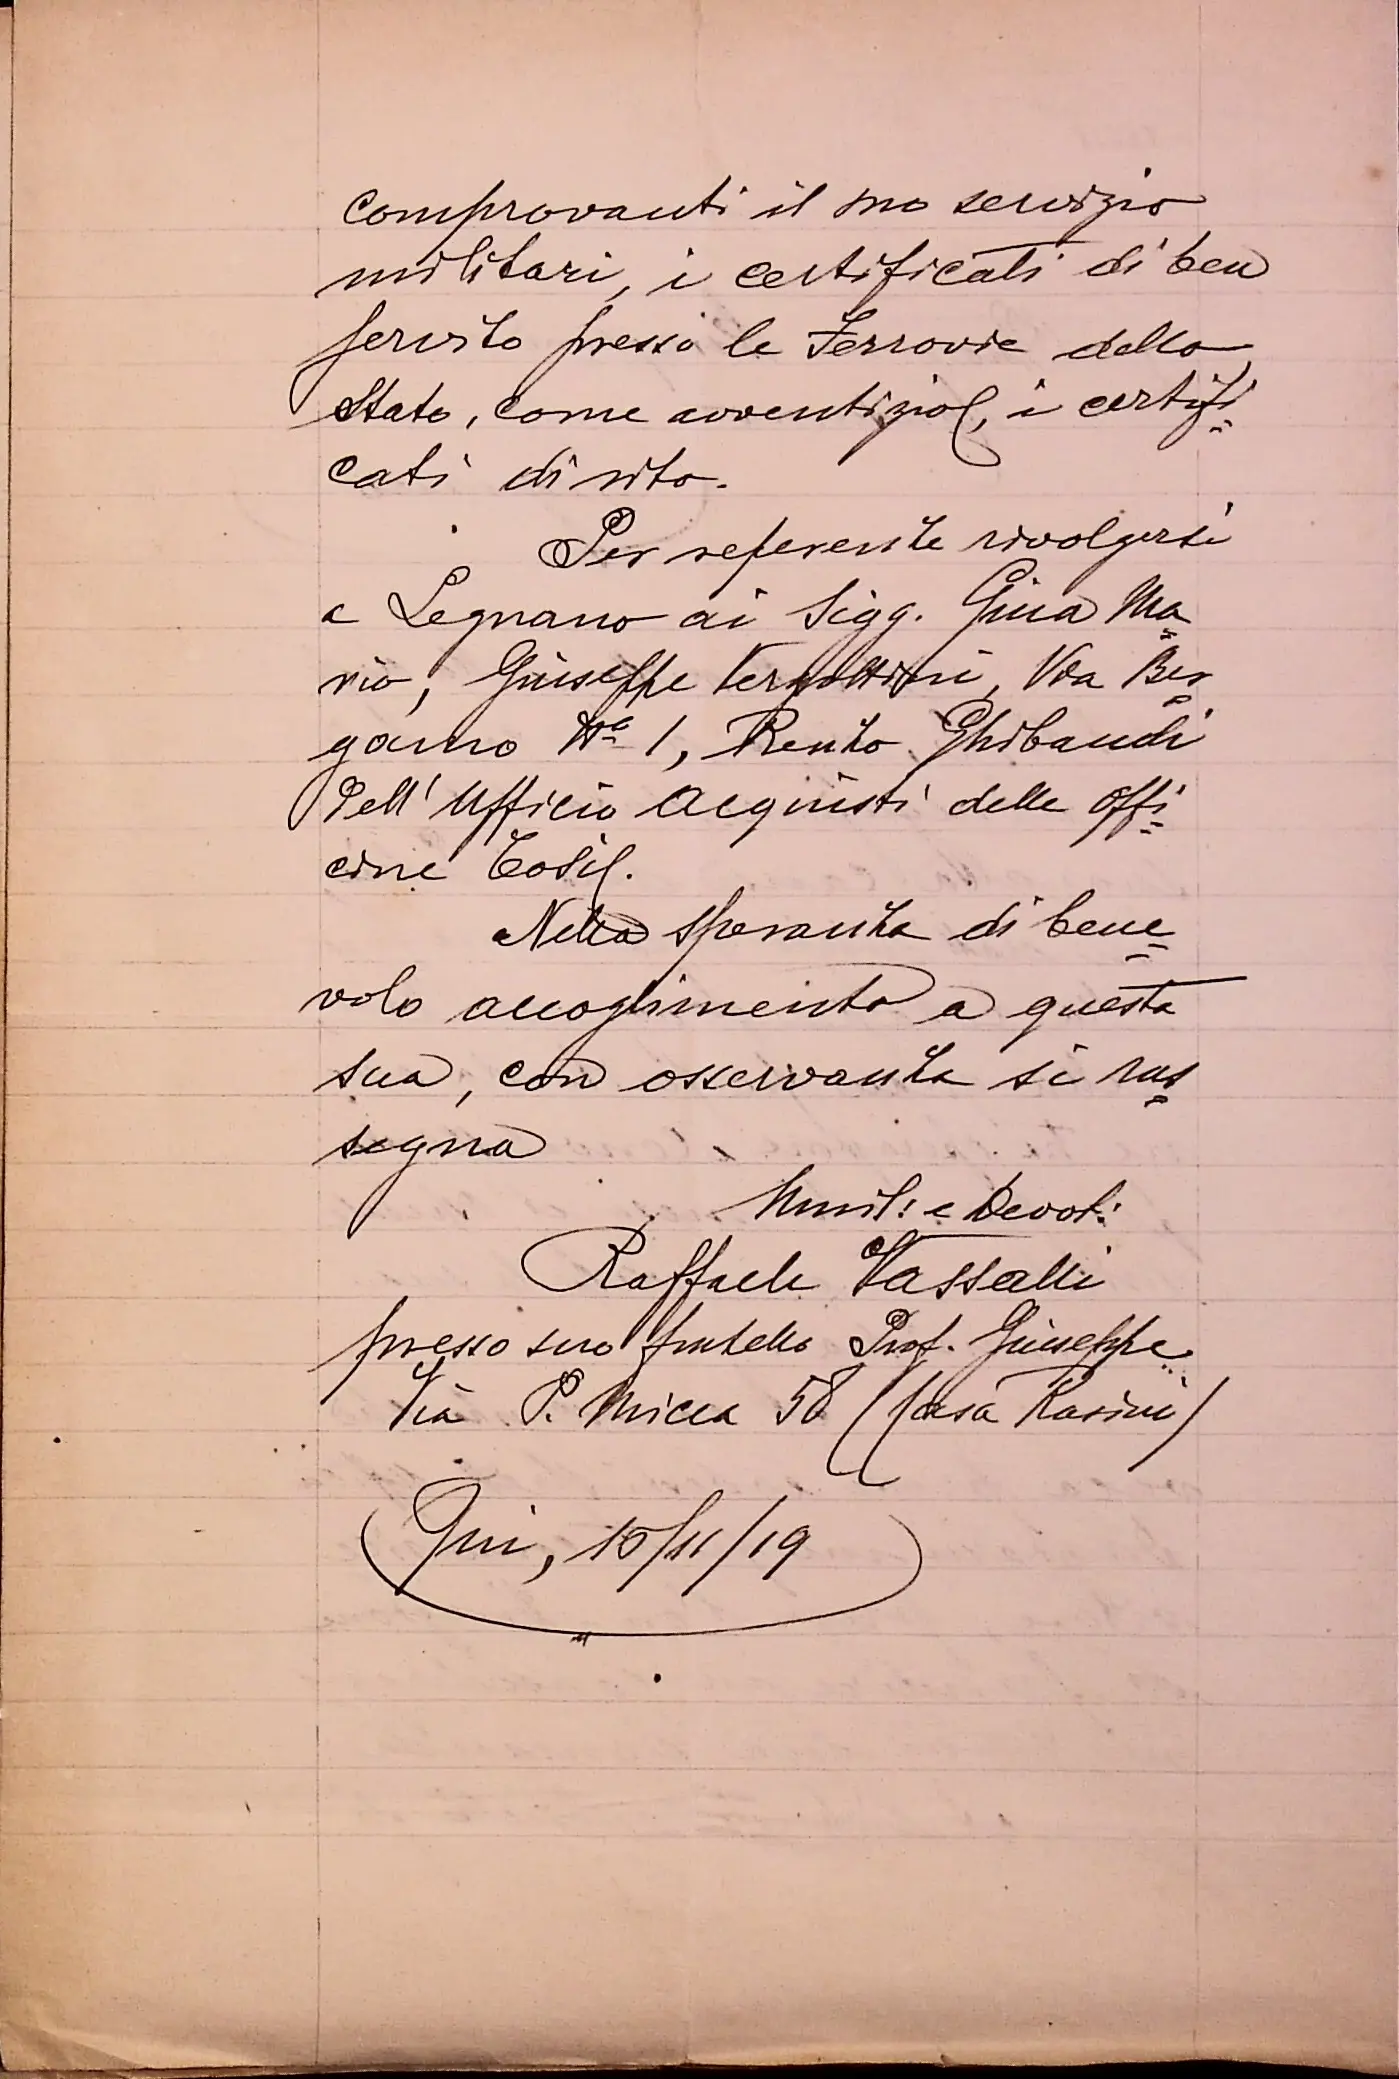 comprovanti il suo servizio
militari, i certificati di ben
servito presso le Ferrovie dello
Stato, come avventizio, i certifi=
cati di rito.
Per referenze rivolgersi
a Legnano ai Sigg. Gina Ma=
rio, Giuseppe Vergottini, Via Ber=
gamo No 1, Renzo Ghibaudi
dell' Ufficio Acquisti delle Offi=
cine Tosi.
Nella speranza di bene=
volo accoglimento a questa
sua, con osservanza si ras=
segna
Umil: e Devot:
Raffaele Vassalli
presso suo fratello Prof. Giuseppe
Via P. Micca 58 (Casa Rasini)
Qui, 10/11/19